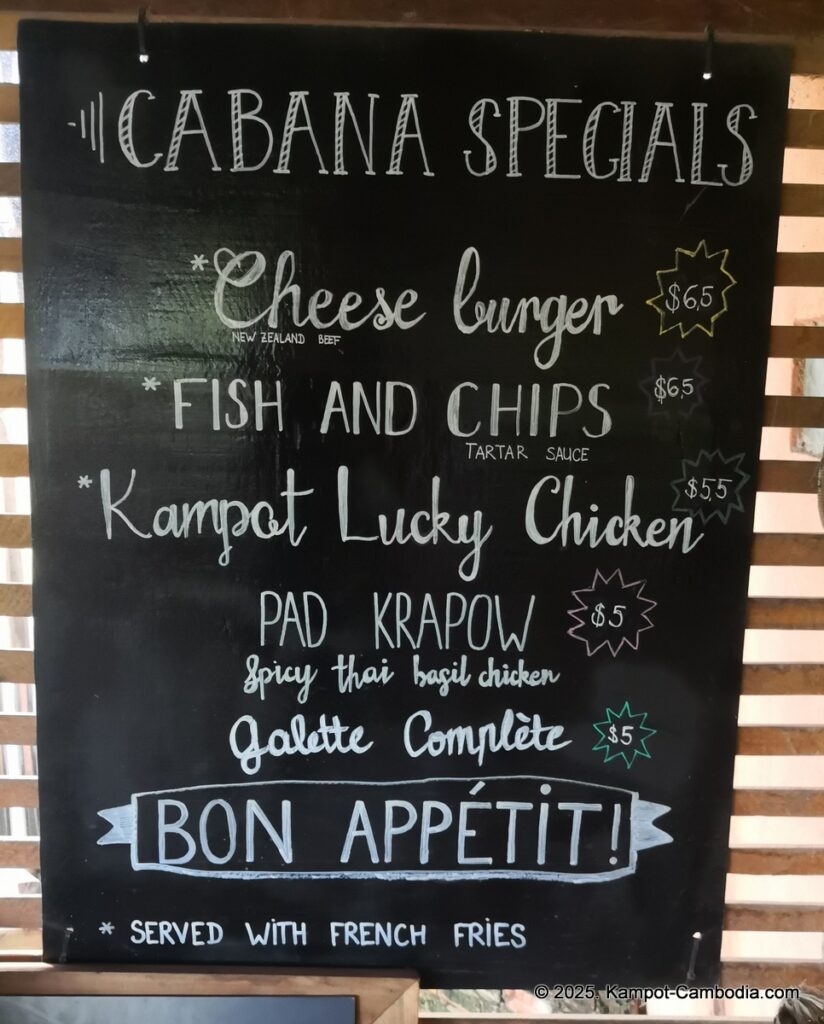 CABANA SPECIALS
*Cheese burger $6,5
NEW ZEALAND BEEF
*FISH AND CHIPS $6,5
TARTAR SAUCE
*Kampot Lucky Chicken $5,5
PAD KRAPOW $5
Spicy thai basil chicken
galette Complète $5
BON APPÉTIT!
* SERVED WITH FRENCH FRIES
© 2025. Kampot-Cambodia.com